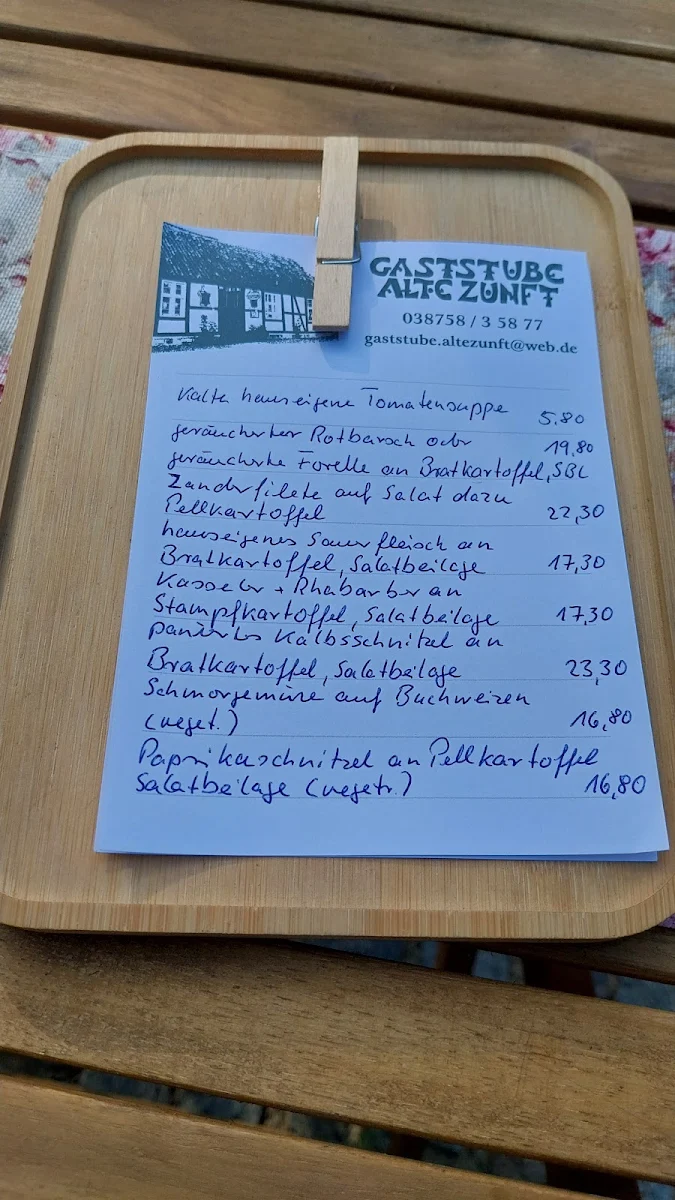 GASTSTUBE
ALTE ZUNFT
038758 / 3 58 77
gaststube.altezunft@web.de
Kalte hauseigene Tomatensuppe 5.80
geräucherter Rotbarsch oder 19,80
geräucherte Forelle an Bratkartoffel, SBL
Zanderfilete auf Salat dazu
Pellkartoffel 22,30
hauseigenes Sauerfleisch an
Bratkartoffel, Salatbeilage 17,30
Kasseler + Rhabarber an
Stampfkartoffel, Salatbeilage 17,30
paniertes Kalbsschnitzel an
Bratkartoffel, Salatbeilage 23,30
Schmorgemüse auf Buchweizen
(veget.) 16,80
Paprikaschnitzel an Pellkartoffel
Salatbeilage (vegetr.) 16,80